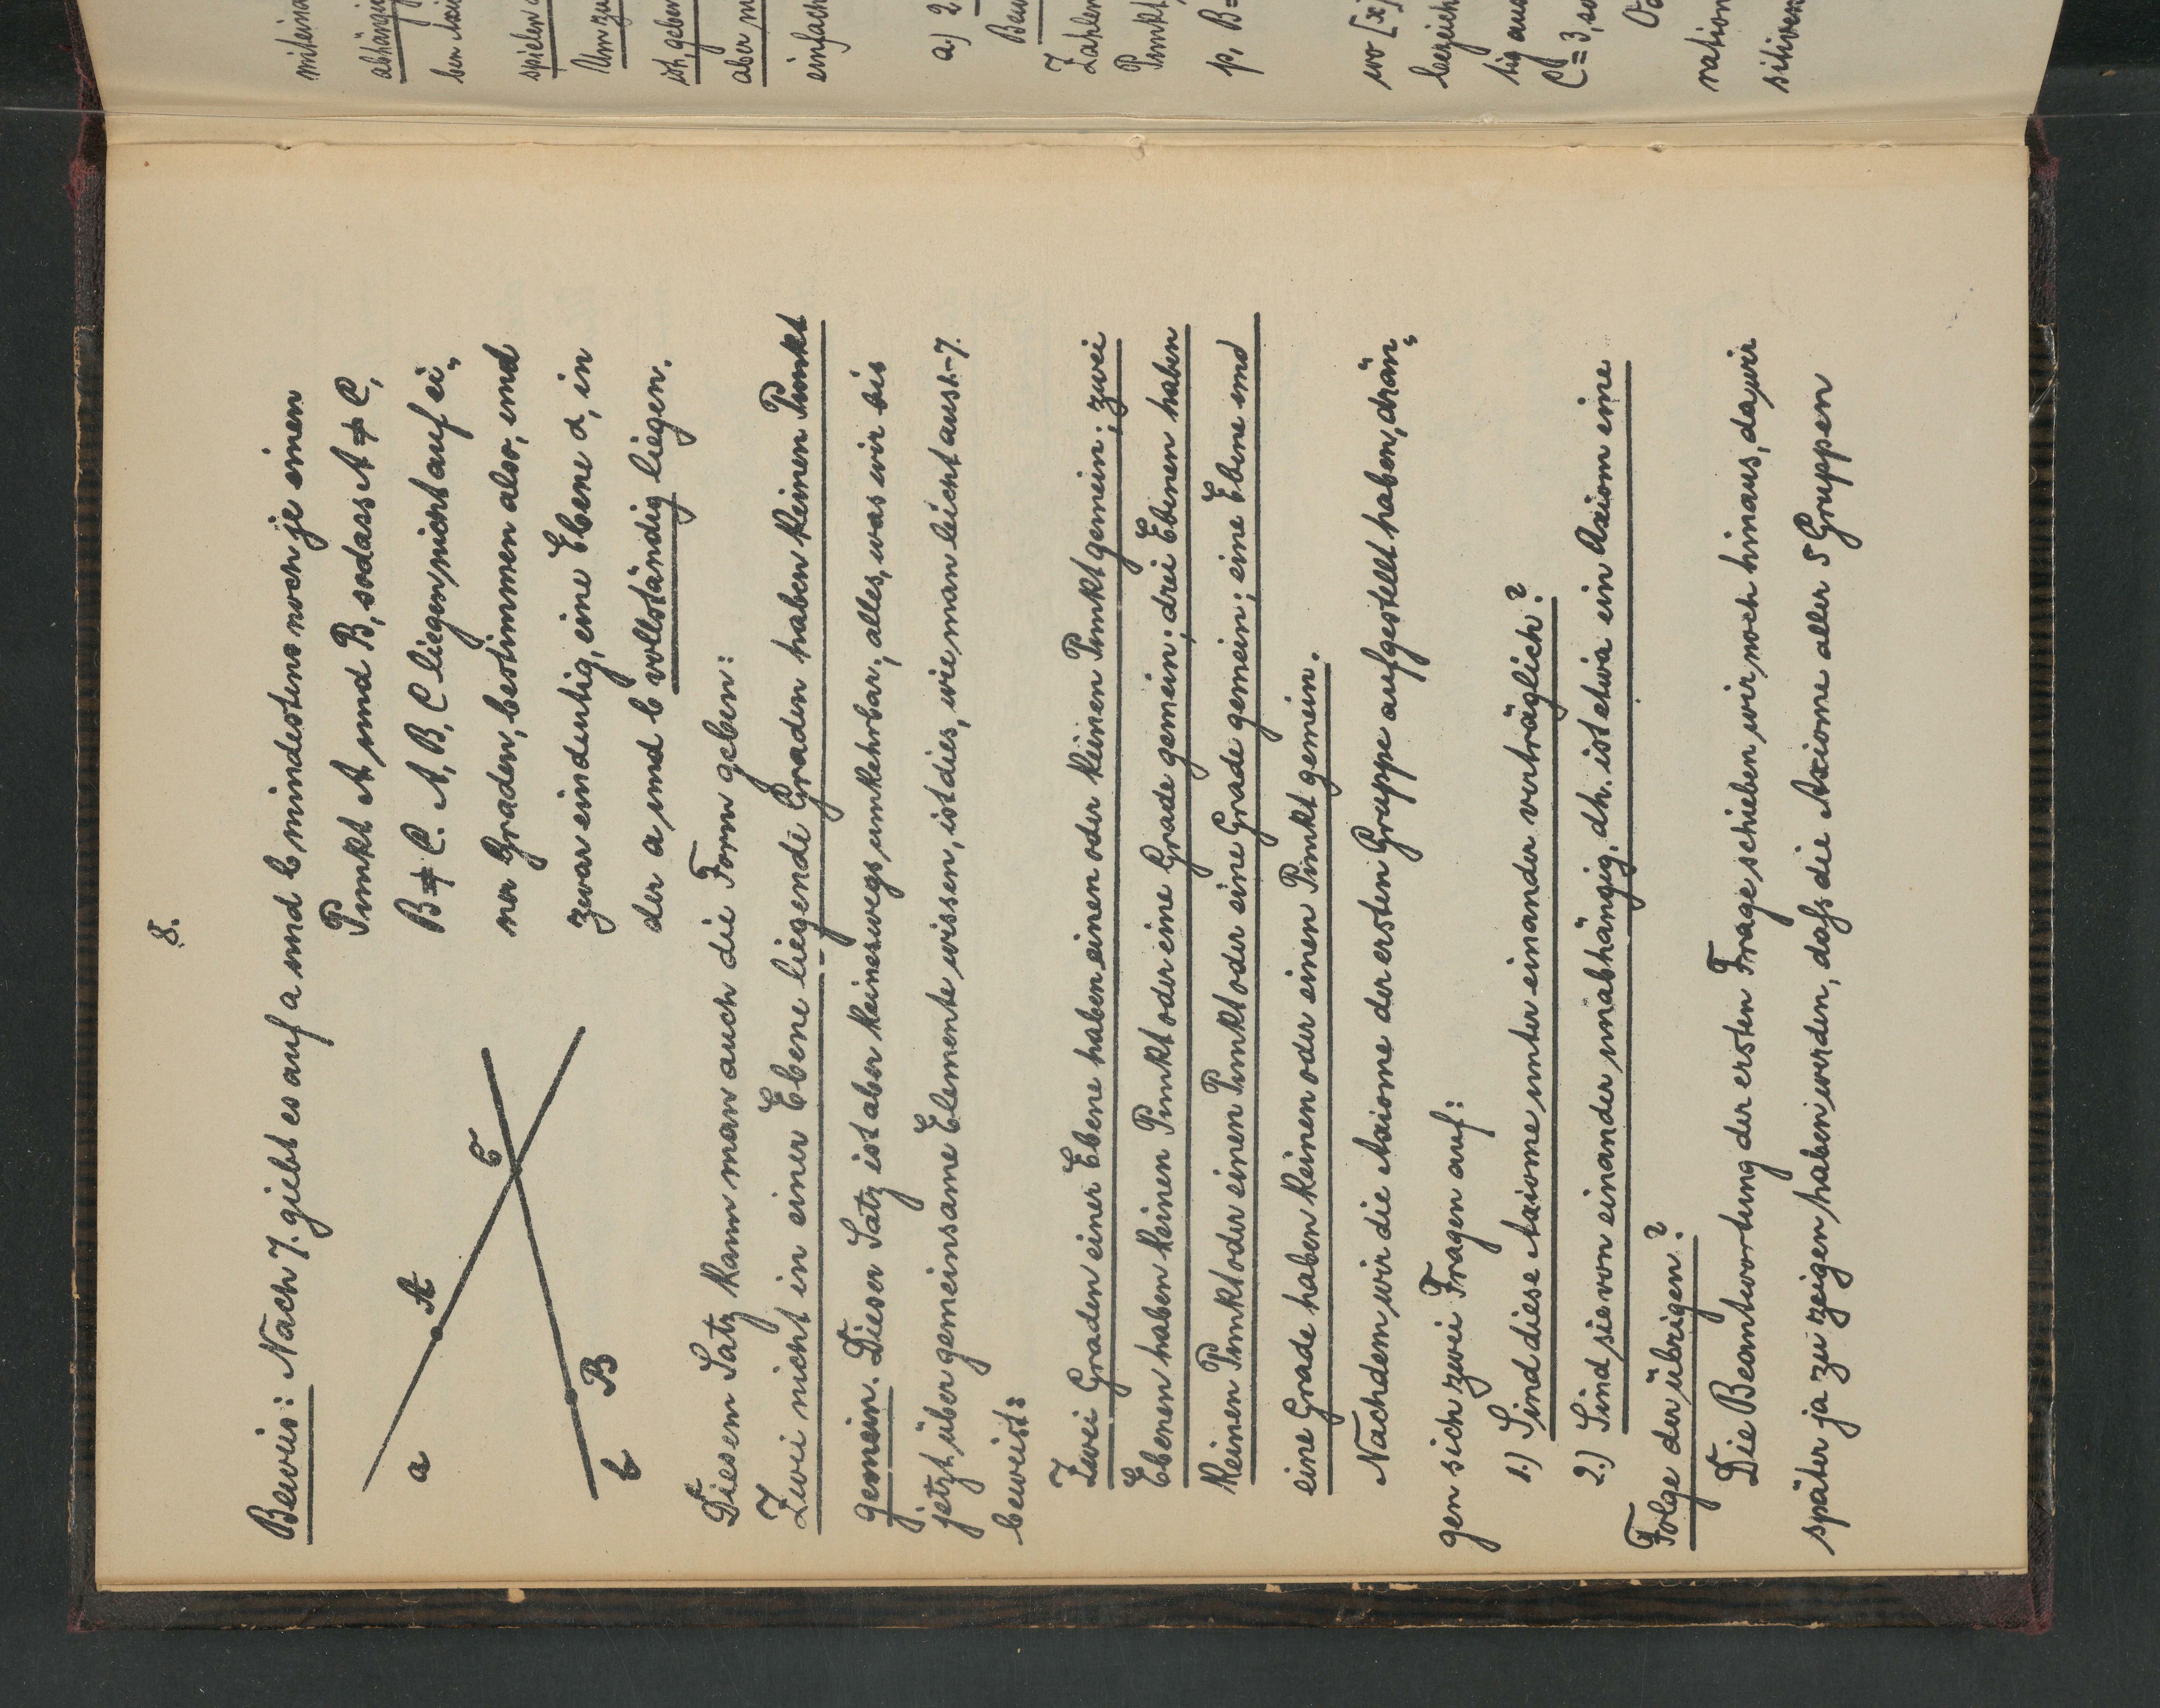 8.
Beweis: Nach 7. giebt es auf a und b mindestens noch je einen
Punkt A und B, sodass A ≠ C,
B ≠ C. A, B, C liegen nicht auf ei„
ner Graden, bestimmen also, und
zwar eindeutig, eine Ebene α, in
der a und b vollständig liegen.
a
A
C
B
b
Diesem Satz kann man auch die Form geben:
Zwei nicht in einer Ebene liegende Graden haben keinen Punkt
gemein. Dieser Satz ist aber keineswegs umkehrbar, alles, was wir bis
jetzt über gemeinsame Elemente wissen, ist dies, wie man leicht aus 1-7.
beweist:
Zwei Graden einer Ebene haben einen oder keinen Punkt gemein; zwei
Ebenen haben keinen Punkt oder eine Grade gemein; drei Ebenen haben
keinen Punkt oder einen Punkt oder eine Grade gemein; eine Ebene und
eine Grade haben keinen oder einen Punkt gemein.
Nachdem wir die Axiome der ersten Gruppe aufgestellt haben, drän„
gen sich zwei Fragen auf:
1.) Sind diese Axiome unter einander verträglich?
2.) Sind sie von einander unabhängig, dh. ist etwa ein Axiom eine
Folge der übrigen?
Die Beantwortung der ersten Frage schieben wir noch hinaus, da wir
später ja zu zeigen haben werden, dass die Axiome aller 5 Gruppen
abhängig
spielen
Um zu
ich geben
aber
einfach
a.) 2
Bew
Zahlen
Punkt
p, B=
wo [x]
bezeich
tig aus
C=3, so
ration
sitiven